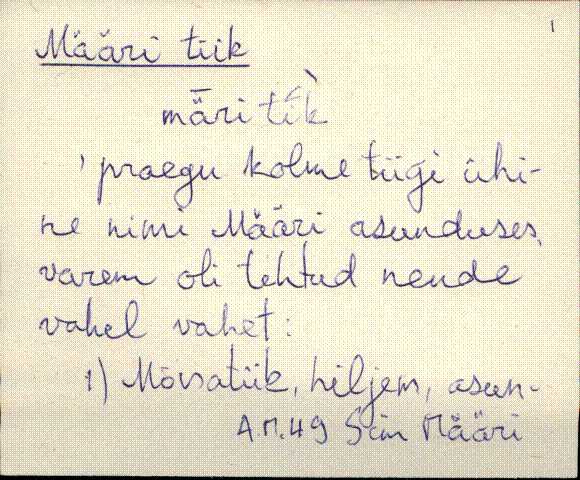 1
Määri tiik
mǟri tīk̀
' praegu kolme tiigi ühi-
ne nimi Määri asunduses,
varem oli tehtud nende
vahel vahet:
1) Mõisatiik, hiljem, asun-
A.M. 49 Sim Määri